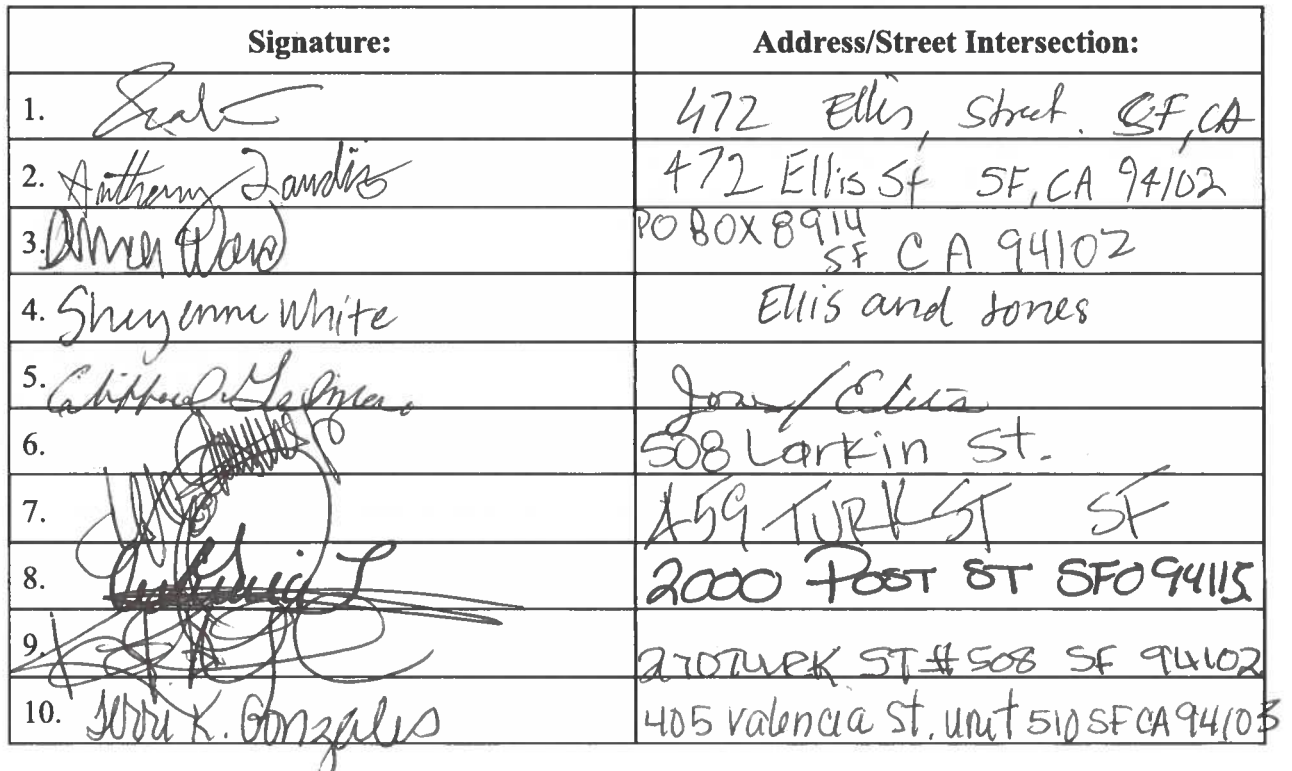 Signature: Address/Street Intersection:
1. 472 Ellis, Street. SF, CA
2. Anthony 472 Ellis St SF, CA 94102
3. Ward PO BOX 8914
SF CA 94102
4. Sheyenne White Ellis and Jones
5. Jones/Ellis
6. 508 Larkin St.
7. 459 TURK ST SF
8. 2000 POST ST SFO 94115
9. 270 TURK ST #508 SF 94102
10. Terri K. Gonzales 405 Valencia St. Unit 510 SF CA 94103